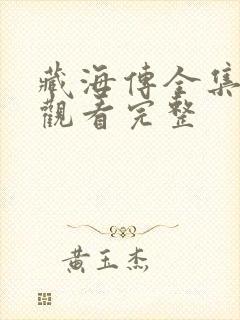 藏海傳全集
觀看完整
黃玉杰